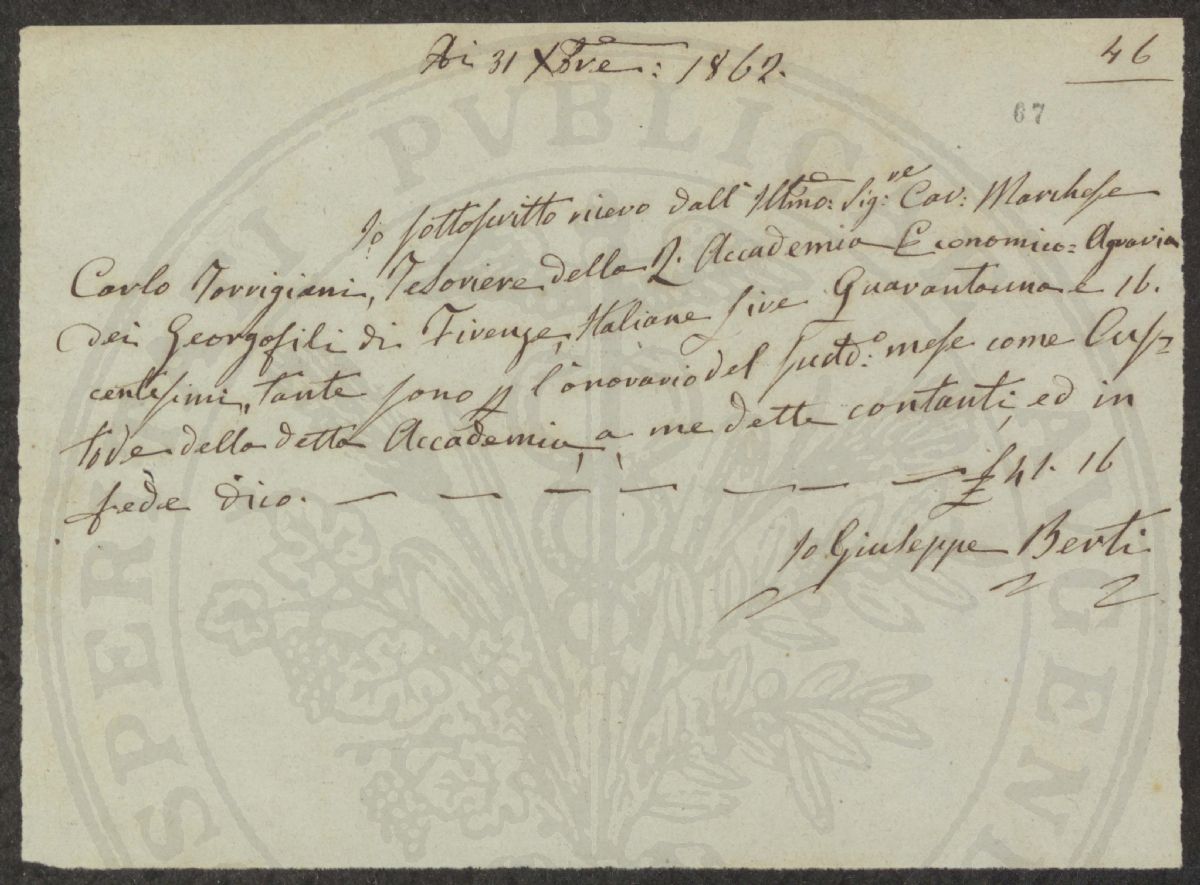 Di 31 Xbre: 1862.
46
67
Io sottoscritto ricevo dall' Illmo: Sig:re Cav: Marchese
Carlo Torrigiani, Tesoriere della R. Accademia Economico=Agraria
dei Georgofili di Firenze, Italiane Lire Quarantauna e 16.
centesimi, tante sono p l'onorario del sudd:o mese come Cus=
tode della detta Accademia, a me dette contanti, ed in
fede dico. — — — — — — — £ 41. 16
Io Giuseppe Berti
SPERITATI PVBLICAE AVGEN